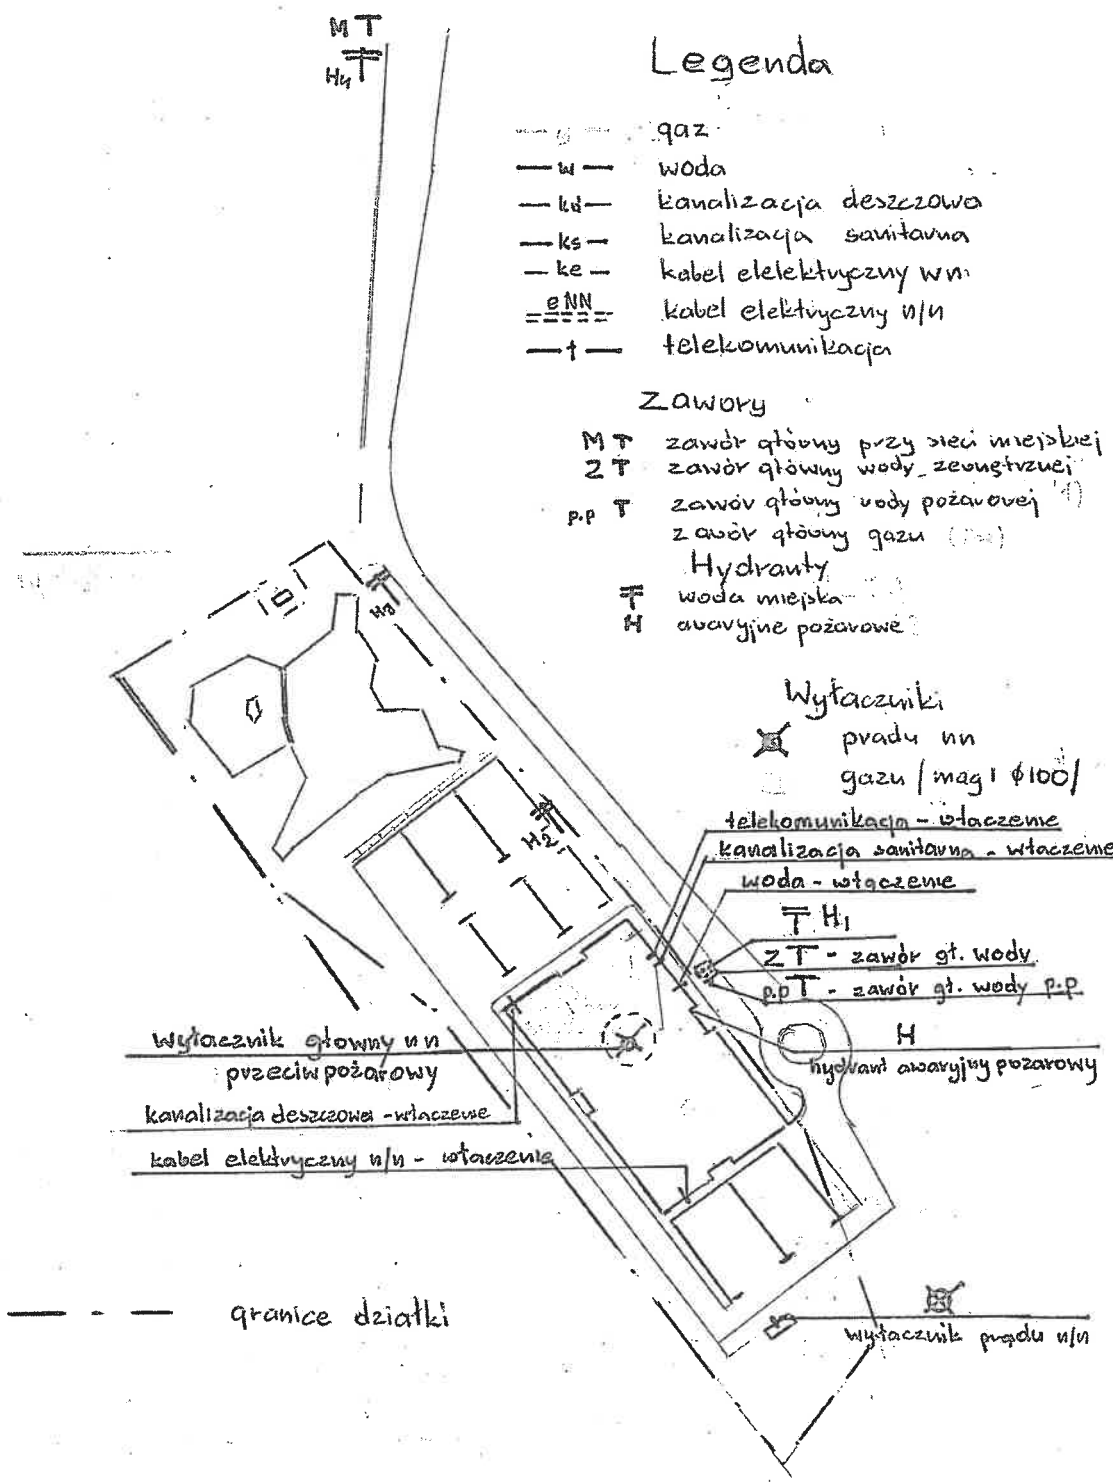 M T
H4
Legenda
g gaz
w woda
kd kanalizacja deszczowa
ks kanalizacja sanitarna
ke kabel elelektryczny wn
eNN kabel elektryczny n/n
t telekomunikacja
Zawory
M T zawór główny przy sieci miejskiej
Z T zawór główny wody zewnętrznej
p.p T zawór główny wody pożarowej
zawór główny gazu
Hydranty
woda miejska
H awaryjne pożarowe
H3
Wyłaczniki
pradu nn
gazu / mag1 ϕ100/
telekomunikacja - włączenie
kanalizacja sanitarna - włączenie
H2
woda - włączenie
H1
Z T - zawór gł. wody
p.p T - zawór gł. wody p.p
H
hydrant awaryjny pozarowy
Wyłacznik głowny nn
przeciwpożarowy
kanalizacja deszczowa - włączenie
kabel elektryczny n/n - włączenie
granice działki
wyłacznik prądu n/n